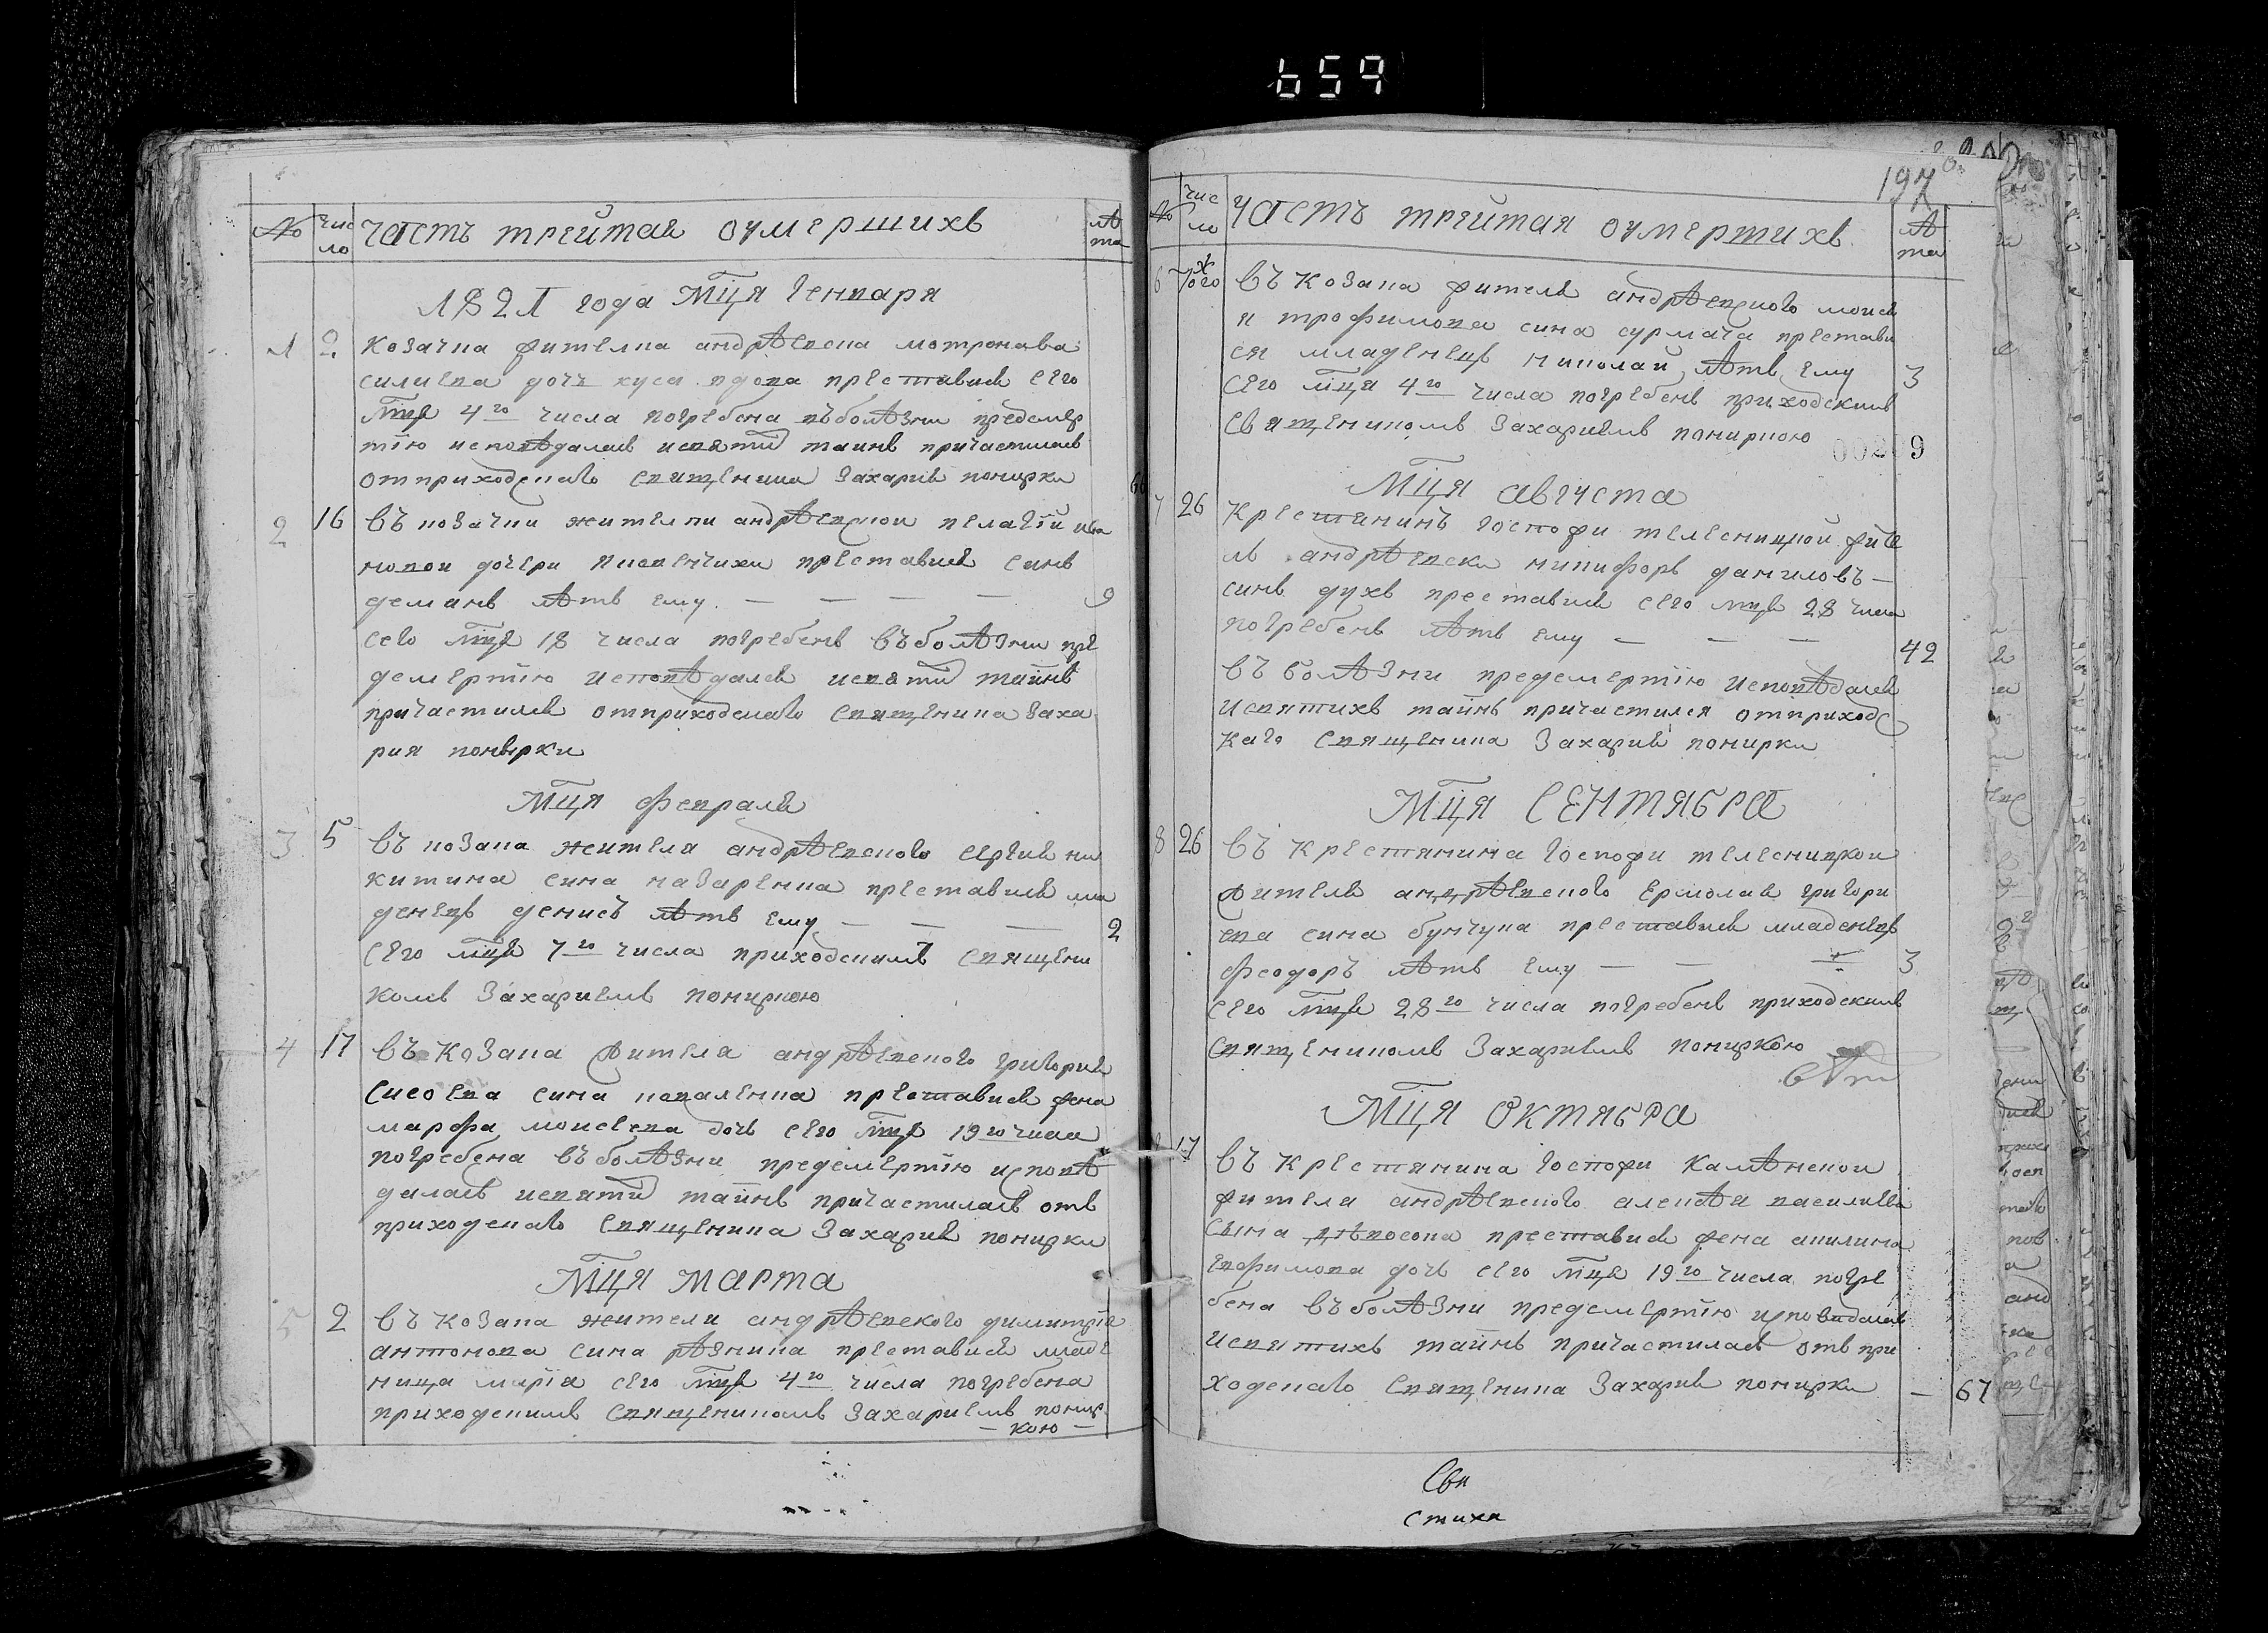 659
№ чис ло часть трейтая о умершихъ лѣ та
1821 года Мц҃я Генваря
1 2 козачка жителка андрѣевска мотрона ва
силиева дочь куса вдова преставися сего
мц҃я 4го числа погребена въ болѣзни предсмер
тію исповѣдалась и святы таинъ причастилась
от приходскаго священика Захария понирки 60
2 16 въ козачки жителки андрѣевской пелагіи ива
новой дочери преставися синъ
демянъ лѣтъ ему — — — — 9
сего мц҃я 18 числа погребенъ въ болѣзни пре
дсмертію исповѣдался и святы тайнъ
причастился от приходскаго священика Заха
рия понырки
Мц҃я февраля
3 5 въ козака жителя андрѣевского сергия ни
китина сина назаренка преставися мла
денецъ денисъ лѣтъ ему — — — 2
сего мц҃я 7го числа приходскимъ священи
комъ Захариемъ пониркою
4 17 въ козака жителя андрѣевского григория
сисоева сина коваленка преставися жена
марфа моисеева дочь сего мц҃я 19го числа
погребена въ болѣзни предсмертію исповѣ
далась и святы тайнъ причастилась отъ
приходскаго священика Захария понирки
Мц҃я марта
5 2 въ козака жителя андрѣевского димитрія
антонова сина рѣзника преставися младе
ница марія сего мц҃я 4го числа погребена
приходскимъ священикомъ Захариемъ понир
— кою —
197
№ чис ло часть трейтая о умершихъ лѣ та
6 въ козака жителя андрѣевского моисея
трофимова сина сурмача престави
ся младенецъ николай лѣтъ ему 3
сего мц҃я 4го числа погребенъ приходскимъ
священикомъ Захариемъ пониркою
Мц҃я августа
7 26 крестянинъ госпожи телесницкой жите
ль андрѣевски никифоръ даниловъ —
синъ духъ преставися сего мц҃я 28 числа
погребенъ лѣтъ ему — — — 42
въ болѣзни предсмертію исповѣдался
и святихъ тайнъ причастился от приходс
каго священика Захария понирки
Мц҃я СЕНТЯБРА
8 26 въ крестянина госпожи телесницкои
жителя андрѣевского ермолая григори
ева сина бунчука преставися младенецъ
феодоръ лѣтъ ему — — 3
сего мц҃я 28го числа погребенъ приходскимъ
священикомъ Захариемъ пониркою
Мц҃я ОКТЯБРА
17 въ крестянина госпожи Калѣненои
жителя андрѣевского алексѣя василиева
сына преставися жена акилина
ефимова дочь сего мц҃я 19го числа погре
бена въ болѣзни предсмертію исповидалась
и святихъ тайнъ причастилась отъ при
ходскаго священика Захария понирки — 67
Свя
стиха